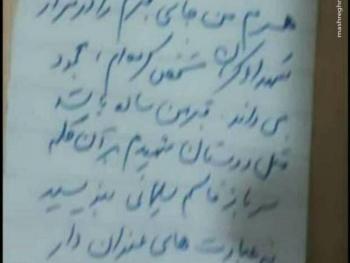 همسرم من جای قبرم را در مزار
شهداء کرمان مشخص کرده‌ام، محمود
می داند. قبر من ساده باشد
مثل دوستان شهیدم بر آن کلمه
سرباز قاسم سلیمانی بنویسید
نه عبارت های عنوان دار